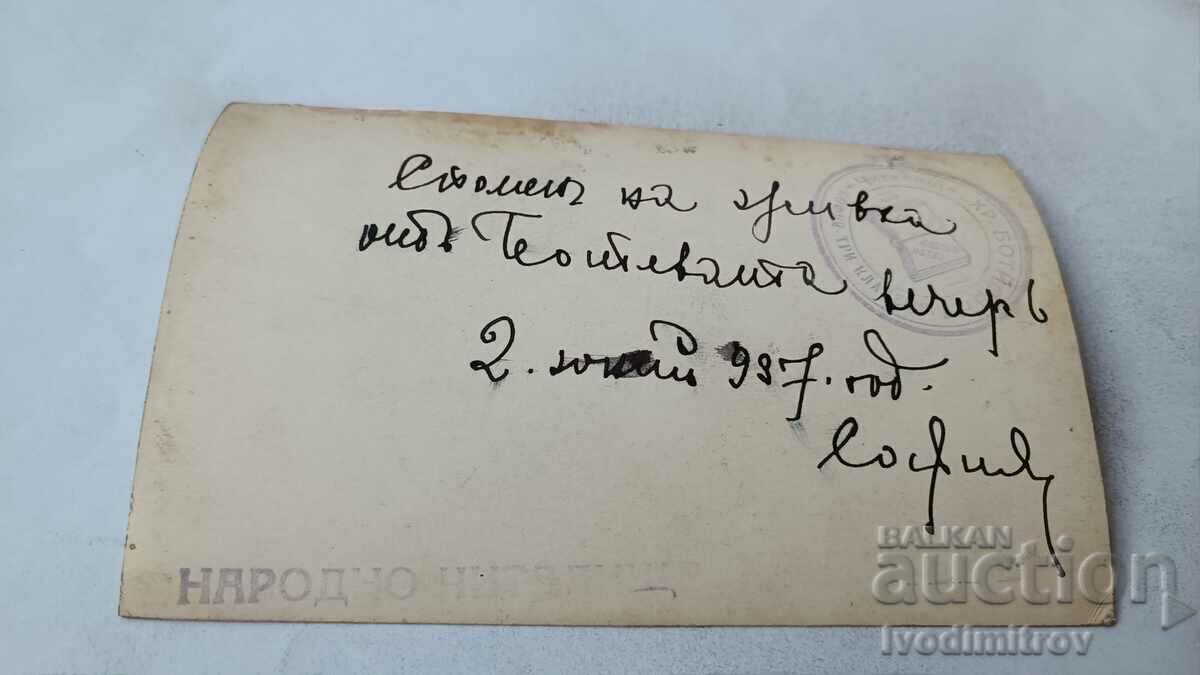 Споменъ на
отъ Ботевата вечеръ
2. юний 937. год.
София
ХР. БОТЕ
ТРИ КЛА
НАРОДНО ЧИТАЛИЩЕ
BALKAN
auction
Ivodimitrov